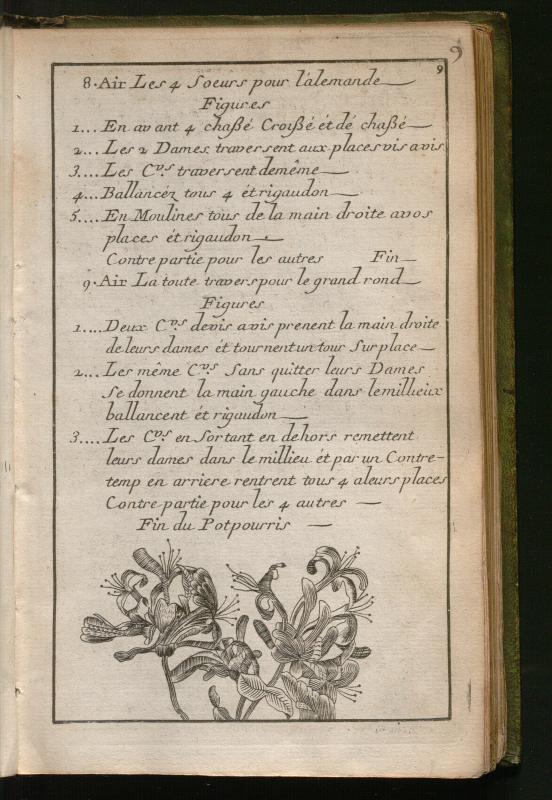 9
9
8. Air Les 4 Soeurs pour l'alemande
Figures
1... En avant 4 chaßé Croißé ét dé chaßé
2... Les 2 Dames traversent aux places vis avis
3.... Les C.vs traversent demême
4... Ballancéz tous 4 ét rigaudon
5.... En Moulines tous de la main droite avos
places ét rigaudon
Contre partie pour les autres Fin
9. Air La toute travers pour le grand rond
Figures
1.... Deux C.vs devis avis prenent la main droite
de leurs dames ét tournent un tour Sur place
2.... Les même C.vs Sans quitter leurs Dames
Se donnent la main gauche dans lemillieux
ballancent ét rigaudon
3.... Les C.vs en Sortant en dehors remettent
leurs dames dans le millieu ét par un Contre-
temp en arriere rentrent tous 4 aleurs places
Contre partie pour les 4 autres
Fin du Potpourris